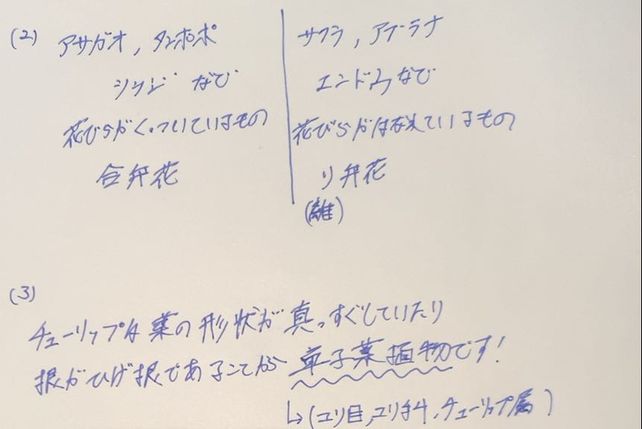 (2) アサガオ, タンポポ
ツツジ など
花びらがくっついているもの
合弁花
サクラ, アブラナ
エンドウなど
花びらがはなれているもの
り弁花
(離)
(3)
チューリップは葉の形状が真っすぐしていたり
根がひげ根であることから 単子葉植物です!
↳(ユリ目,ユリ科,チューリップ属)